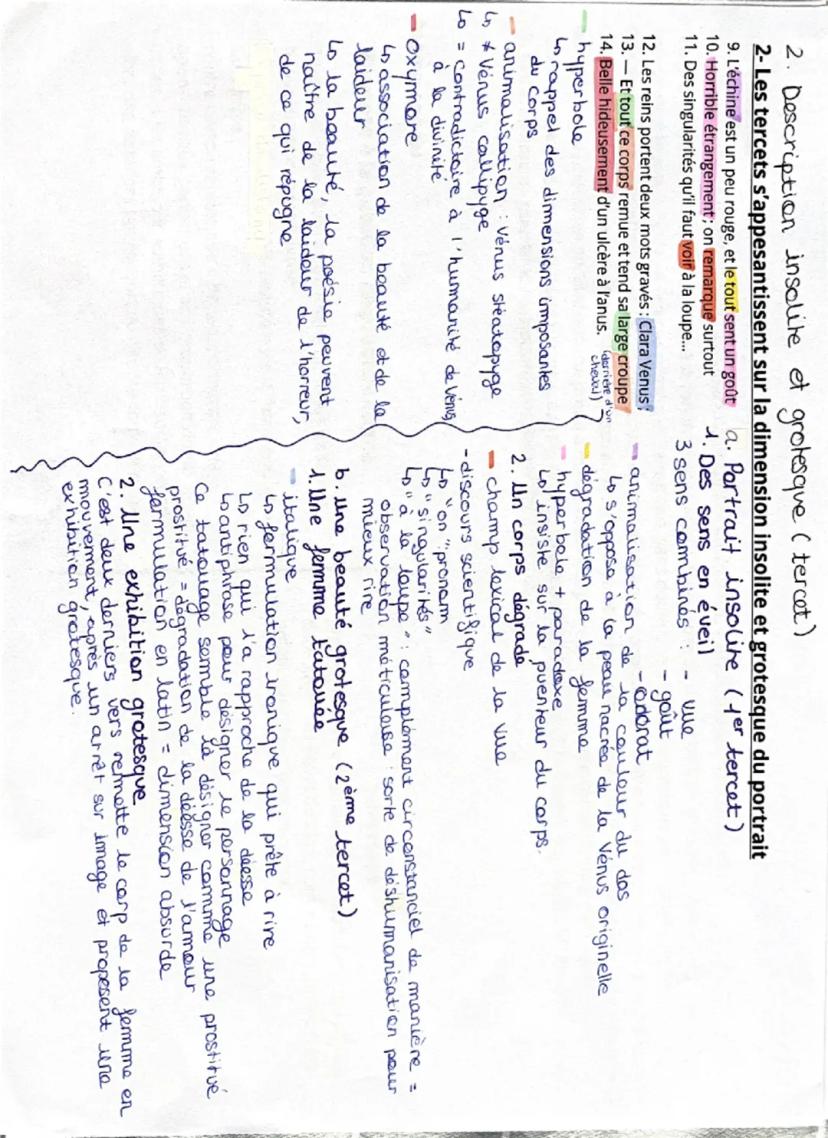 2. Description insolite et grotesque (tercet)
2- Les tercets s'appesantissent sur la dimension insolite et grotesque du portrait
9. L'échine est un peu rouge, et le tout sent un goût
10. Horrible étrangement ; on remarque surtout
11. Des singularités qu'il faut voir à la loupe...
12. Les reins portent deux mots gravés : Clara Venus ;
13. — Et tout ce corps remue et tend sa large croupe
14. Belle hideusement d'un ulcère à l'anus.
(derrière d'un
cheval)
a. Portrait insolite (1er tercet)
1. Des sens en éveil
3 sens combinés : - vue
- goût
- odorat
- animalisation de la couleur du dos
↳ s'oppose à la peau nacrée de la Vénus originelle
- dégradation de la femme
- hyperbole + paradoxe
↳ insiste sur la puenteur du corps.
2. Un corps dégradé
- champ lexical de la vue
- discours scientifique
↳ "on" : pronom
↳ "singularités"
↳ "à la loupe" : complément circonstanciel de manière =
observation méticuleuse : sorte de déshumanisation pour
mieux rire
b. Une beauté grotesque (2ème tercet)
1. Une femme tatouée
- italique
↳ formulation ironique qui prête à rire
↳ rien qui l'a rapproche de la déesse
↳ antiphrase pour désigner le personnage
Ce tatouage semble la désigner comme une prostitué
prostitué = dégradation de la déesse de l'amour
formulation en latin = dimension absurde
2. Une exhibition grotesque
C'est deux derniers vers remette le corp de la femme en
mouvement, après un arrêt sur image et proposent une
exhibition grotesque.
- hyperbole
↳ rappel des dimensions imposantes
du corps
- animalisation : Vénus stéatopyge
↳ ≠ Vénus callipyge
↳ = contradictoire à l'humanité de Vénus,
à la divinité
- oxymore
↳ association de la beauté et de la
laideur
↳ la beauté, la poésie peuvent
naître de la laideur de l'horreur,
de ce qui répugne